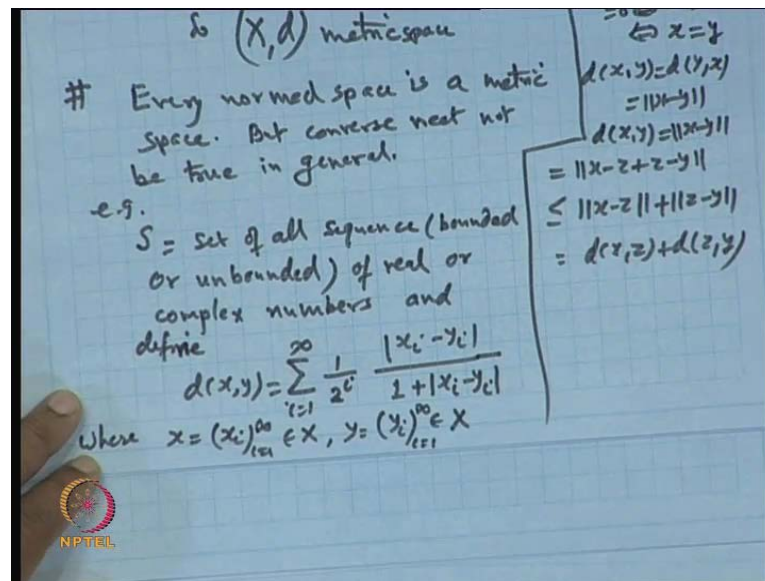 So (X,d) metric space
# Every normed space is a metric
space. But converse neet not
be true in general.
e.g.
S = Set of all sequence (bounded
or unbounded) of real or
complex numbers and
define
d(x,y) = ∑_{i=1}^{∞} 1/2^i |x_i - y_i| / (1 + |x_i - y_i|)
where x = (x_i)_{i=1}^{∞} ∈ X, y = (y_i)_{i=1}^{∞} ∈ X
=0
⇔ x=y
d(x,y)=d(y,x)
=||x-y||
d(x,y)=||x-y||
= ||x-z+z-y||
≤ ||x-z||+||z-y||
= d(x,z)+d(z,y)
NPTEL